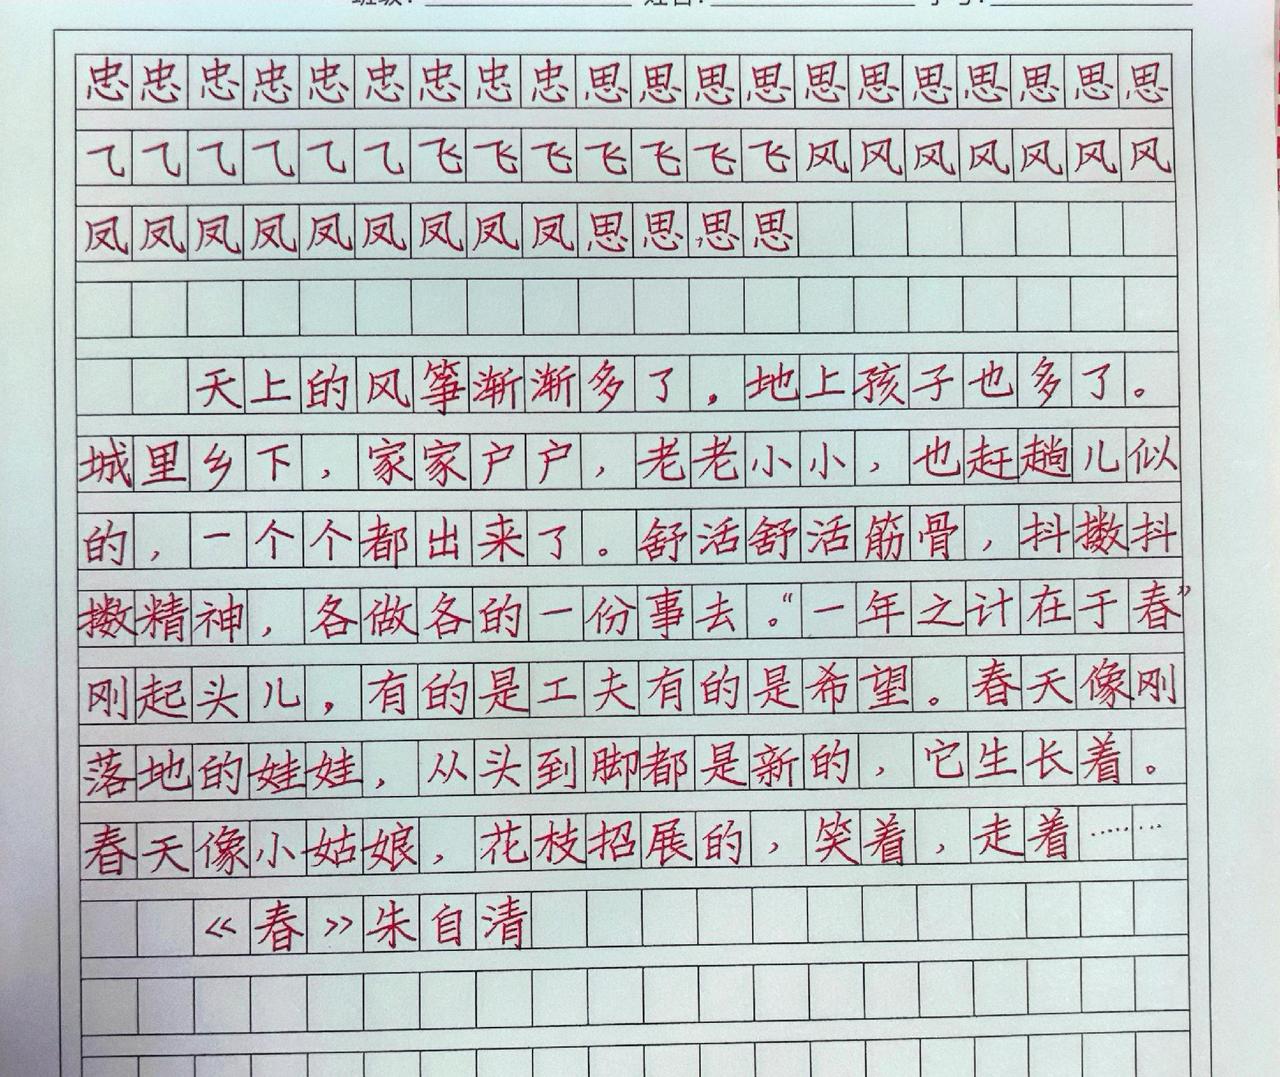 班级: 姓名: 学号:
忠忠忠忠忠忠忠忠忠思思思思思思思思思思思
⺄⺄⺄⺄⺄⺄飞飞飞飞飞飞飞风风风风风风风
凤凤凤凤凤凤凤凤凤思思思思
天上的风筝渐渐多了，地上孩子也多了。
城里乡下，家家户户，老老小小，也赶趟儿似
的，一个个都出来了。舒活舒活筋骨，抖擞抖
擞精神，各做各的一份事去。“一年之计在于春”
刚起头儿，有的是工夫有的是希望。春天像刚
落地的娃娃，从头到脚都是新的，它生长着。
春天像小姑娘，花枝招展的，笑着，走着……
《春》朱自清